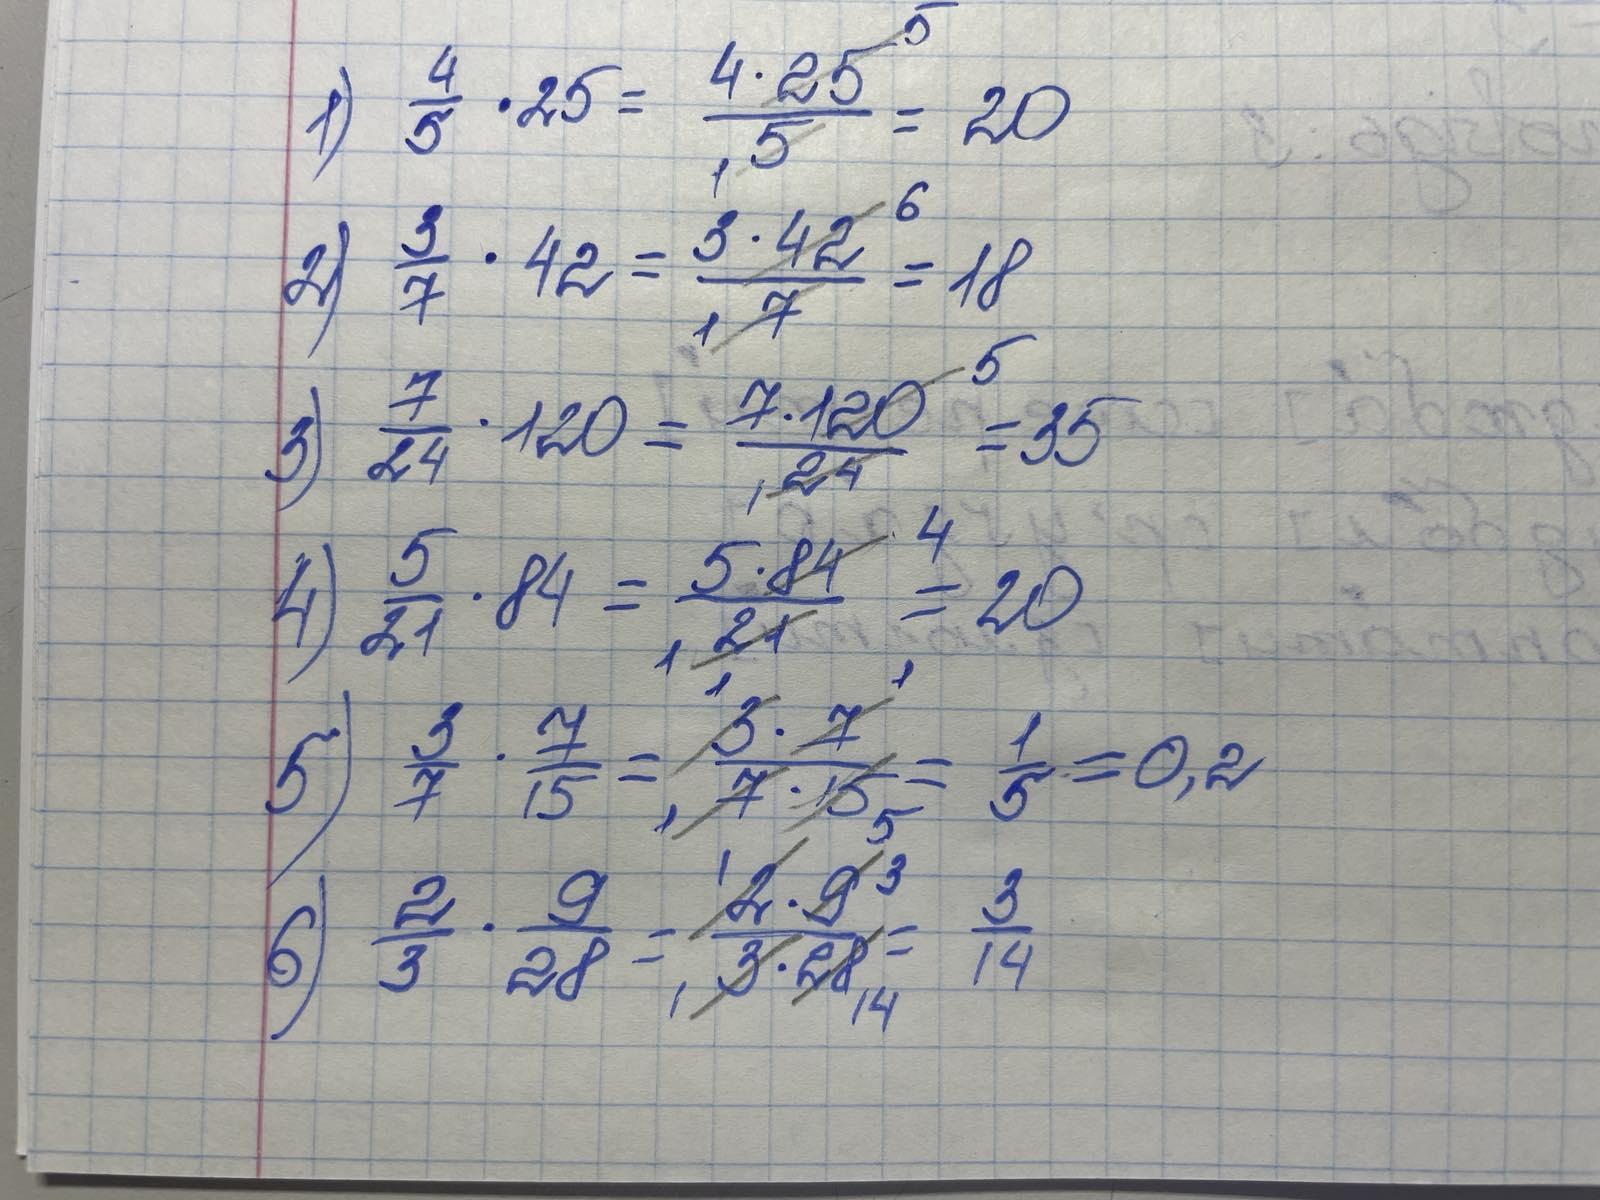 1) 4/5 · 25 = 4 · 25 5 / 1 5 = 20
2) 3/7 · 42 = 3 · 42 6 / 1 7 = 18
3) 7/24 · 120 = 7 · 120 5 / 1 24 = 35
4) 5/21 · 84 = 5 · 84 4 / 1 21 = 20
5) 3/7 · 7/15 = 1 3 · 7 1 / 1 7 · 15 5 = 1/5 = 0,2
6) 2/3 · 9/28 = 1 2 · 9 3 / 1 3 · 28 14 = 3/14